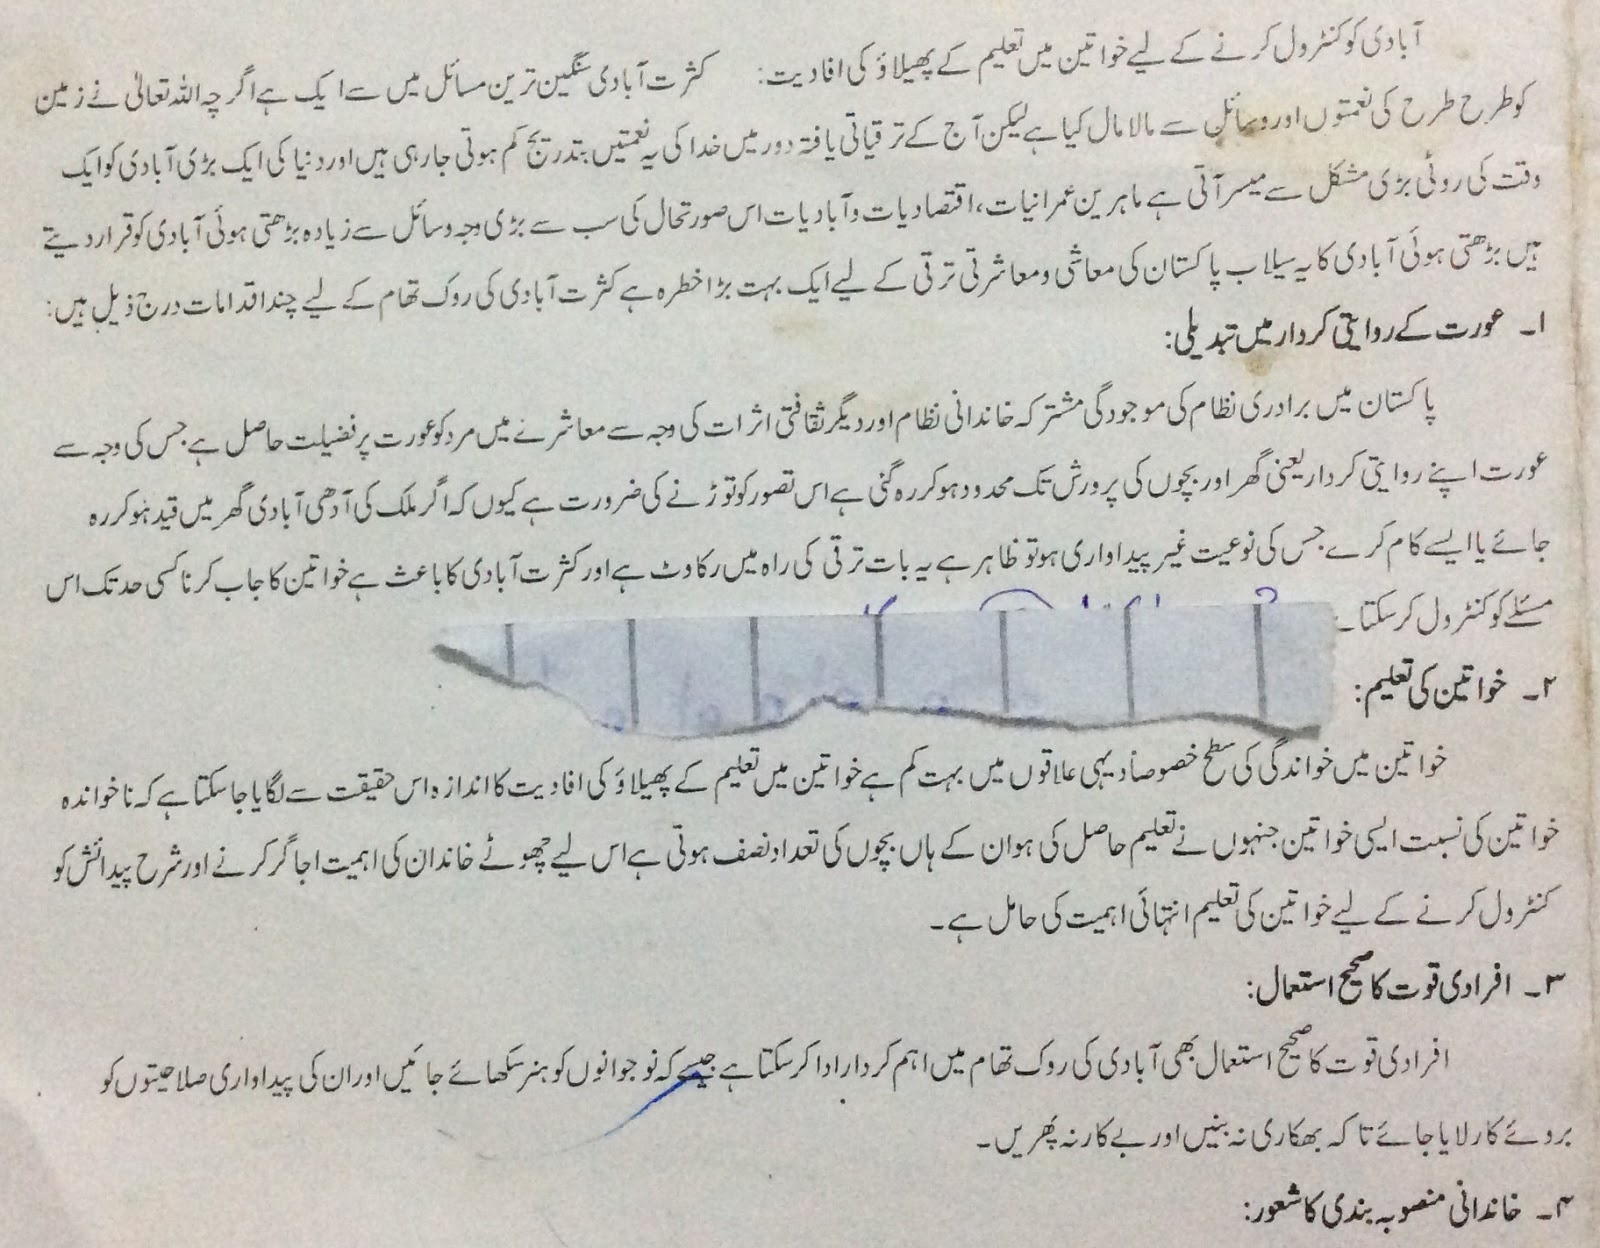 آبادی کو کنٹرول کرنے کے لیے خواتین میں تعلیم کے پھیلاؤ کی افادیت: کثرت آبادی سنگین ترین مسائل میں سے ایک ہے اگرچہ اللہ تعالیٰ نے زمین
کو طرح طرح کی نعمتوں اور وسائل سے مالا مال کیا ہے لیکن آج کے ترقیاتی یافتہ دور میں خدا کی یہ نعمتیں بتدریج کم ہوتی جا رہی ہیں اور دنیا کی ایک بڑی آبادی کو ایک
وقت کی روٹی بڑی مشکل سے میسر آتی ہے ماہرین عمرانیات، اقتصادیات و آبادیات اس صورتحال کی سب سے بڑی وجہ وسائل سے زیادہ بڑھتی ہوئی آبادی کو قرار دیتے
ہیں بڑھتی ہوئی آبادی کا یہ سیلاب پاکستان کی معاشی و معاشرتی ترقی کے لیے ایک بہت بڑا خطرہ ہے کثرت آبادی کی روک تھام کے لیے چند اقدامات درج ذیل ہیں:
۱۔ عورت کے روایتی کردار میں تبدیلی:
پاکستان میں برادری نظام کی موجودگی مشترکہ خاندانی نظام اور دیگر ثقافتی اثرات کی وجہ سے معاشرے میں مرد کو عورت پر فضیلت حاصل ہے جس کی وجہ سے
عورت اپنے روایتی کردار یعنی گھر اور بچوں کی پرورش تک محدود ہو کر رہ گئی ہے اس تصور کو توڑنے کی ضرورت ہے کیوں کہ اگر ملک کی آدھی آبادی گھر میں قید ہو کر رہ
جائے یا ایسے کام کرے جس کی نوعیت غیر پیداواری ہو تو ظاہر ہے یہ بات ترقی کی راہ میں رکاوٹ ہے اور کثرت آبادی کا باعث ہے خواتین کا جاب کرنا کسی حد تک اس
مسئلے کو کنٹرول کر سکتا
۲۔ خواتین کی تعلیم:
خواتین میں خواندگی کی سطح خصوصاً دیہی علاقوں میں بہت کم ہے خواتین میں تعلیم کے پھیلاؤ کی افادیت کا اندازہ اس حقیقت سے لگایا جا سکتا ہے کہ ناخواندہ
خواتین کی نسبت ایسی خواتین جنہوں نے تعلیم حاصل کی ہو ان کے ہاں بچوں کی تعداد نصف ہوتی ہے اس لیے چھوٹے خاندان کی اہمیت اجاگر کرنے اور شرح پیدائش کو
کنٹرول کرنے کے لیے خواتین کی تعلیم انتہائی اہمیت کی حامل ہے۔
۳۔ افرادی قوت کا صحیح استعمال:
افرادی قوت کا صحیح استعمال بھی آبادی کی روک تھام میں اہم کردار ادا کر سکتا ہے جیسے کہ نوجوانوں کو ہنر سکھائے جائیں اور ان کی پیداواری صلاحیتوں کو
بروئے کار لایا جائے تا کہ بھکاری نہ بنیں اور بے کار نہ پھریں۔
۴۔ خاندانی منصوبہ بندی کا شعور: